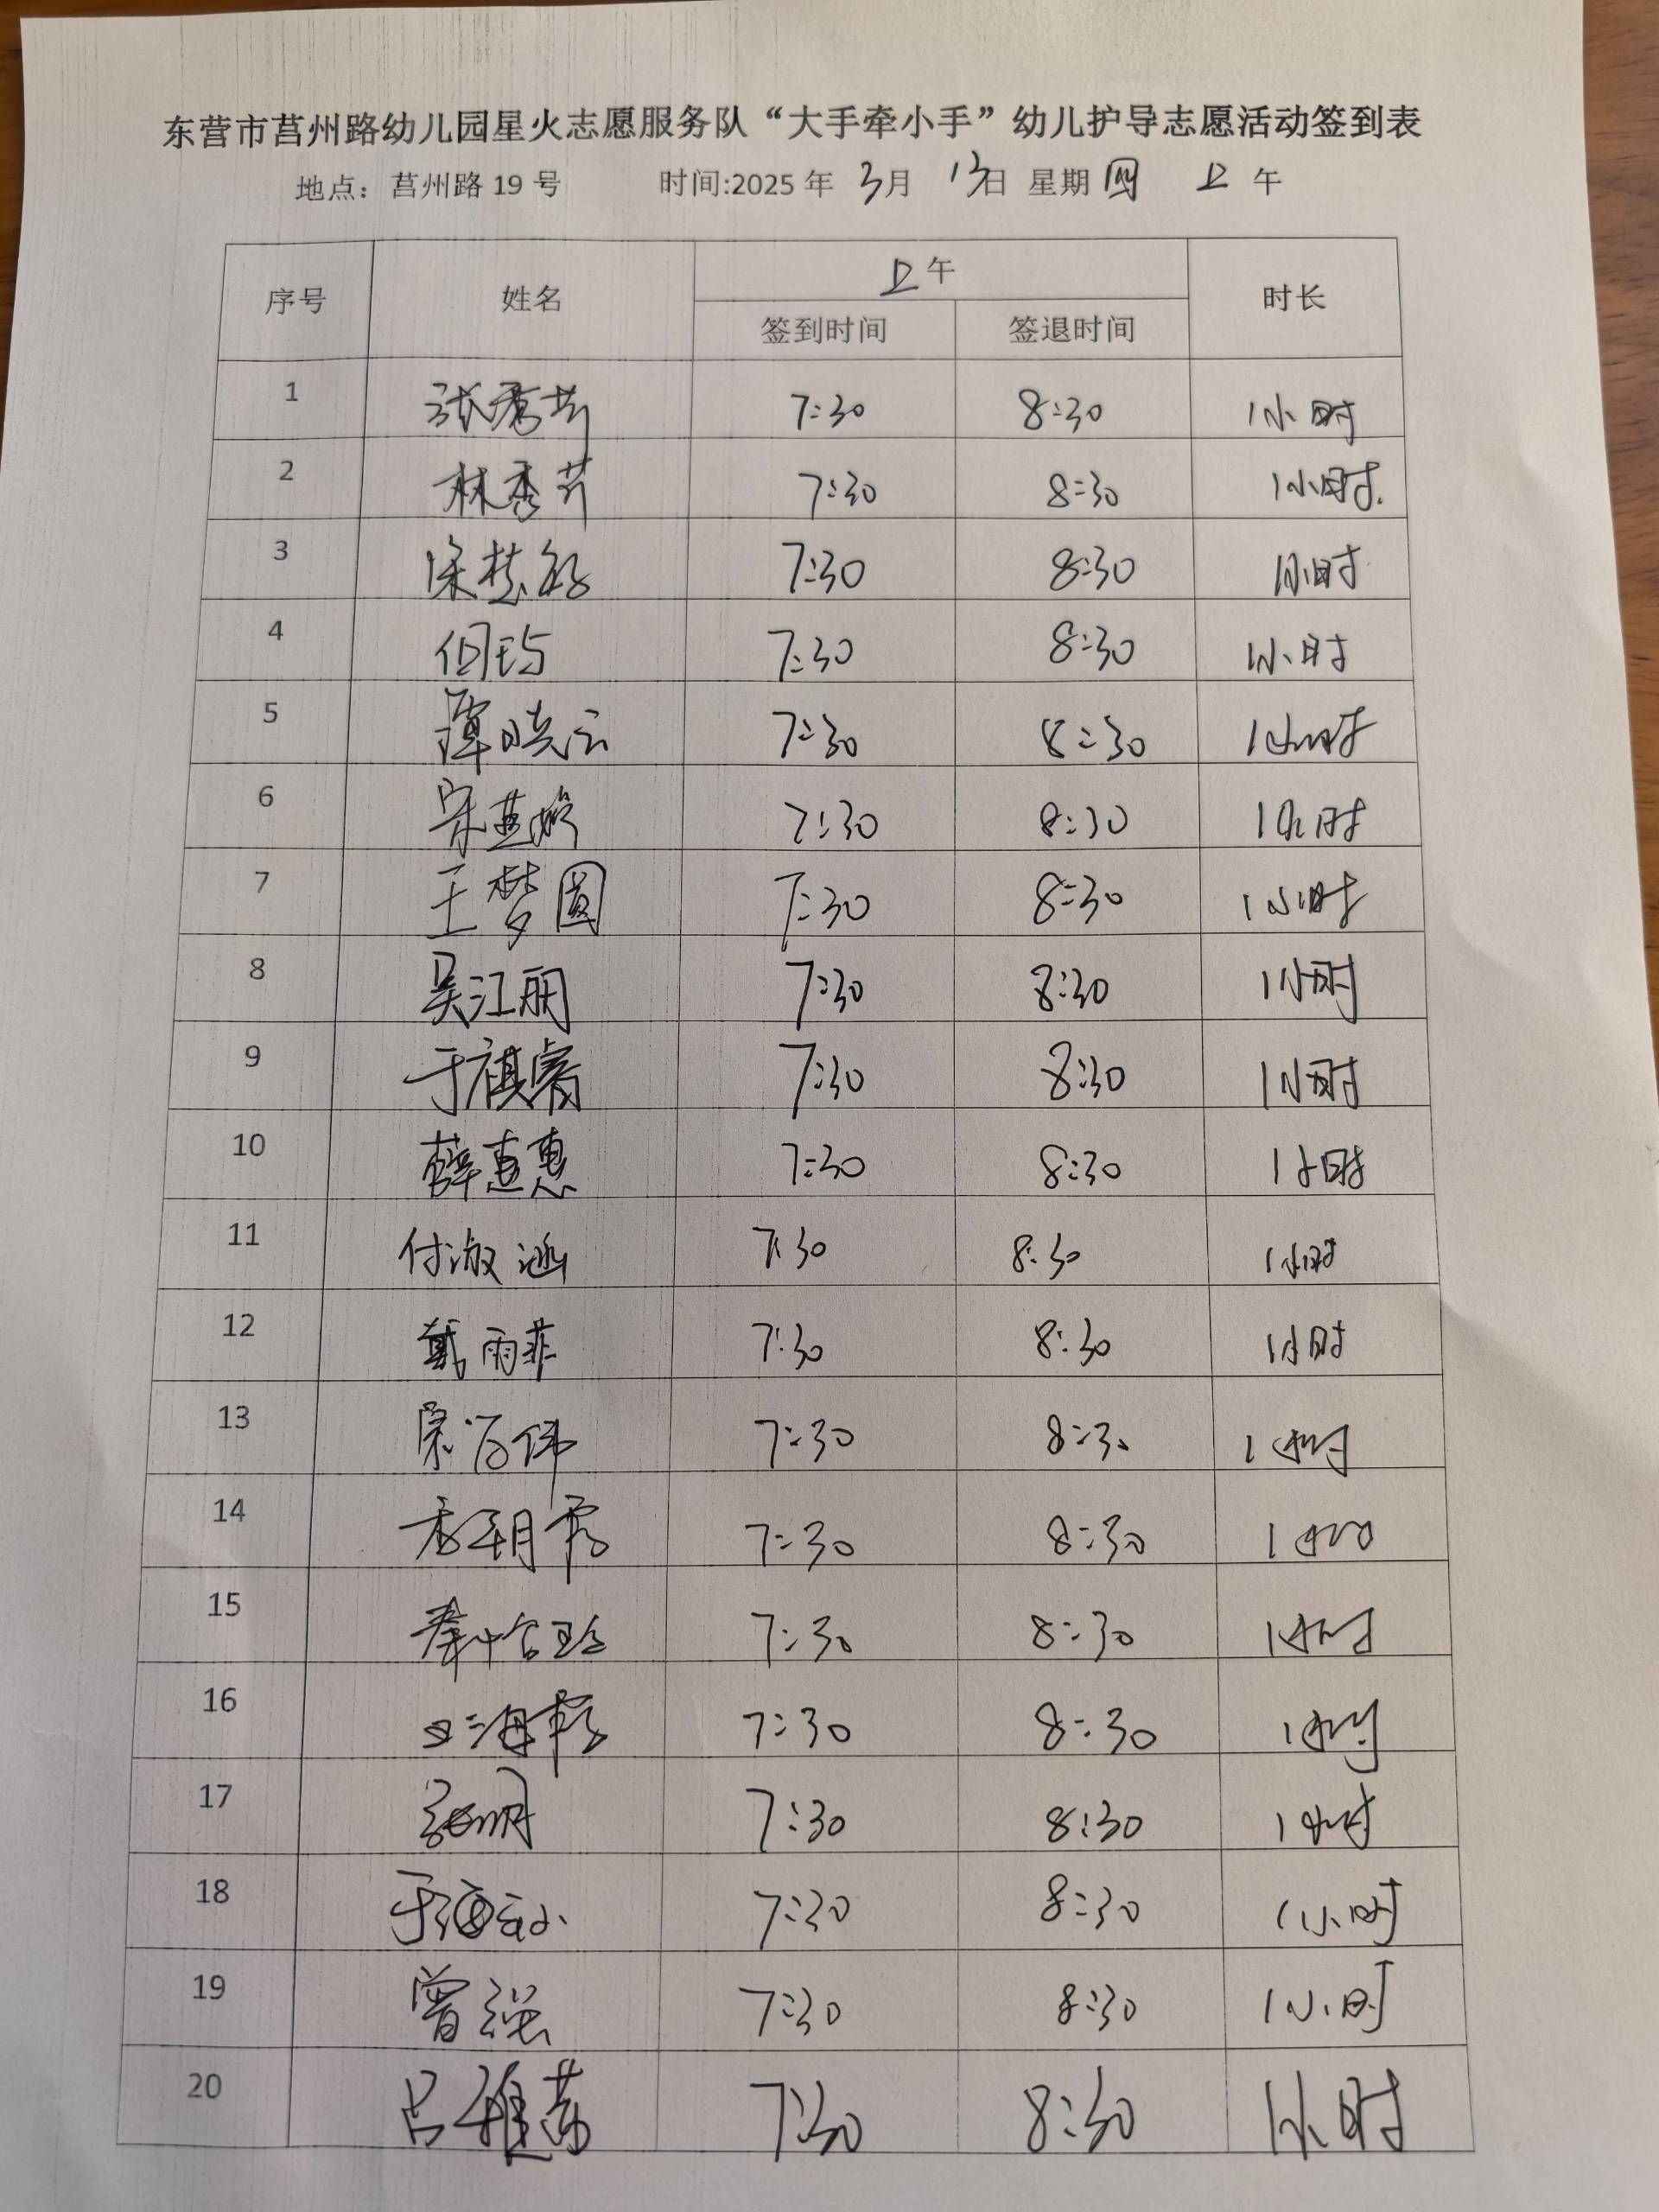 东营市莒州路幼儿园星火志愿服务队“大手牵小手”幼儿护导志愿活动签到表
地点：莒州路 19 号 时间:2025 年 3月 13日 星期四 上午
序号 姓名 上午 时长
签到时间 签退时间
1 张秀芹 7:30 8:30 1小时
2 林秀芹 7:30 8:30 1小时.
3 7:30 8:30 1小时
4 7:30 8:30 1小时
5 谭晓云 7:30 8:30 1小时
6 宋燕婷 7:30 8:30 1小时
7 王梦圆 7:30 8:30 1小时
8 吴江丽 7:30 8:30 1小时
9 于祺睿 7:30 8:30 1小时
10 薛惠惠 7:30 8:30 1小时
11 付淑涵 7:30 8:30 1小时
12 戴雨菲 7:30 8:30 1小时
13 7:30 8:30 1小时
14 7:30 8:30 1小时
15 7:30 8:30 1小时
16 7:30 8:30 1小时
17 7:30 8:30 1小时
18 7:30 8:30 1小时
19 曾强 7:30 8:30 1小时
20 吕雅茹 7:30 8:30 1小时